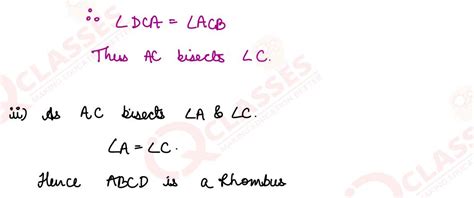 ∴ ∠DCA = ∠ACB
Thus AC bisects ∠C.
iii) As AC bisects ∠A & ∠C.
∠A = ∠C.
Hence ABCD is a Rhombus